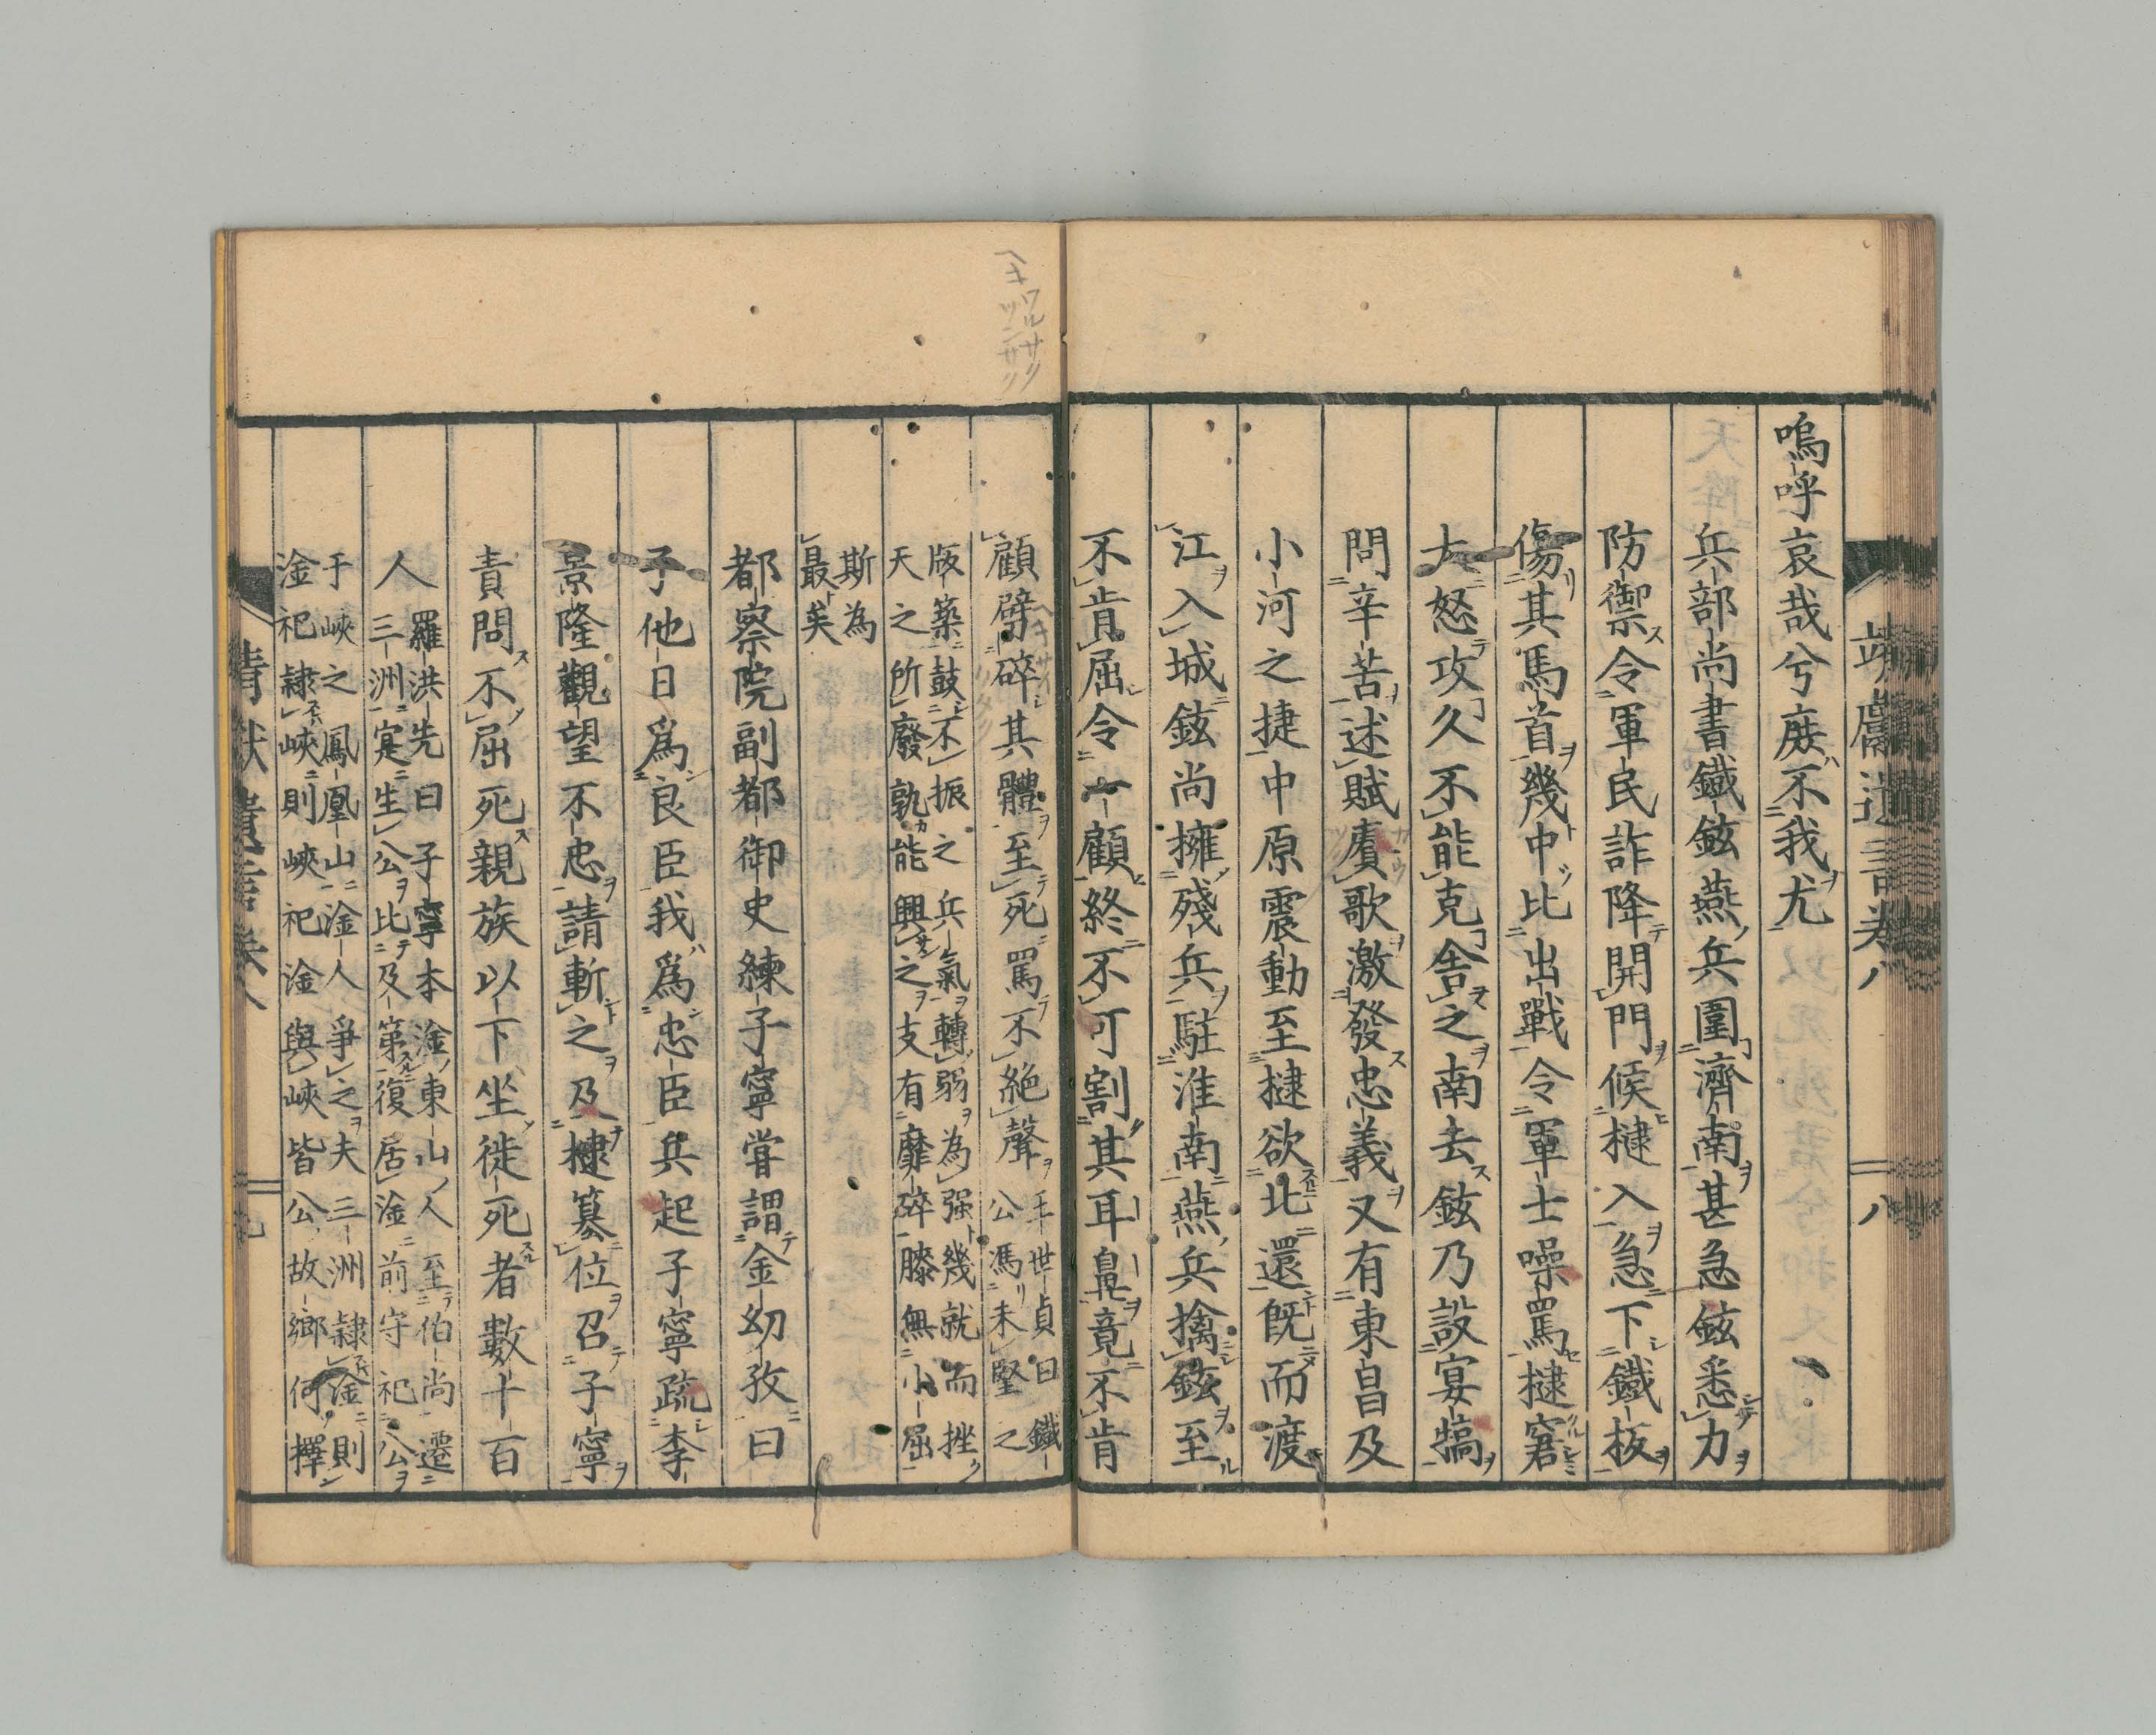 嗚呼哀哉兮庶不我尤
兵部尚書鐵鉉燕兵圍濟南甚急鉉悉力
防御禁令軍民詐降開門候㨗入急下鐵板
傷其馬首幾中比出戰令軍士噪罵㨗窘
大怒攻久不能克舍之南去鉉乃設宴犒
問辛苦述賦賡歌激發忠義又有東昌及
小河之捷中原震動至㨗欲北還既而渡
江入城鉉尚擁殘兵駐淮南燕兵擒鉉至
不肯屈令一顧終不可割其耳鼻竟不肯
顧劈碎其體至死罵不絶聲
王世貞曰鐵
公馮未堅之
版築鼓不振之兵氣轉弱為强幾就而挫
天之所廢孰能興之支有靡碎膝無小屈
斯為
最矣
都察院副都御史練子寧甞謂金幼孜曰
子他日爲良臣我爲忠臣兵起子寧疏李
景隆觀望不忠請斬之及㨗簒位召子寧
責問不屈死親族以下坐徙死者數十百
人
羅洪先曰子寧本淦東山人至伯尚遷
三洲寔生公比及第復居淦前守祀公
于峽之鳳凰山淦人爭之夫三洲隷淦則
淦祀隷峽則峽祀淦與峽皆公故鄉何擇
卷八
八